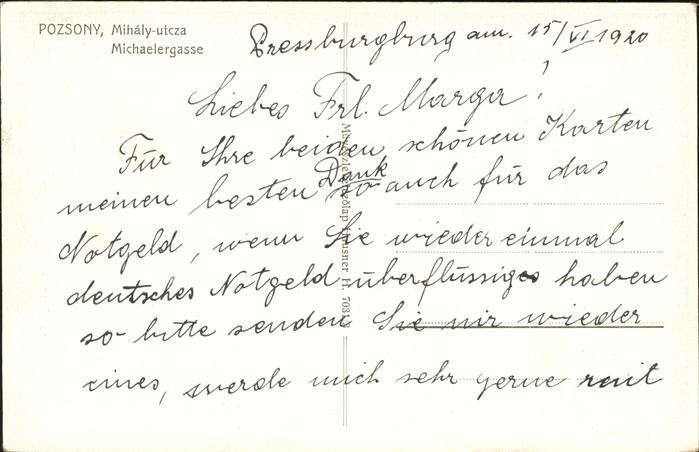 POZSONY, Mihály-utcza
Michaelergasse
Pressburgburg am. 15/VI 1920
Liebes Frl. Marga!
Für Ihre beiden schönen Karten
meinen besten Dank so auch für das
Notgeld, wenn Sie wieder einmal
deutsches Notgeld überflüssiges haben
so bitte senden Sie mir wieder
eines, werde mich sehr gerne mit
H. 7031